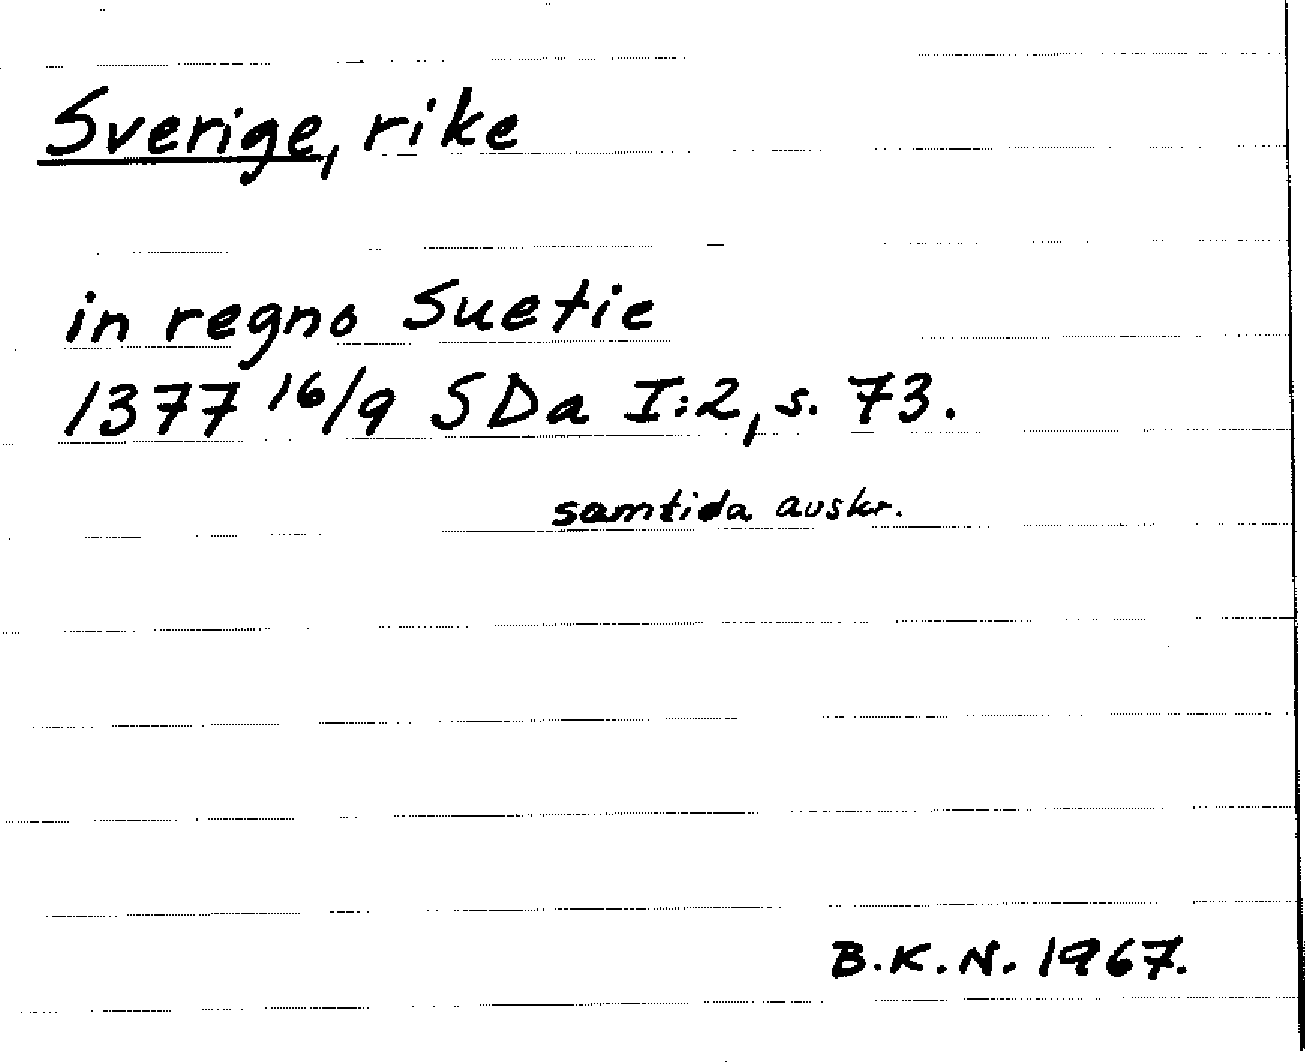 Sverige, rike
in regno Suetie
1377 16/9 SDa I:2, s. 73.
samtida avskr.
B.K.N. 1967.